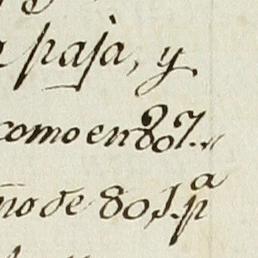 paja, y
como en 807.
ño de 801. pª